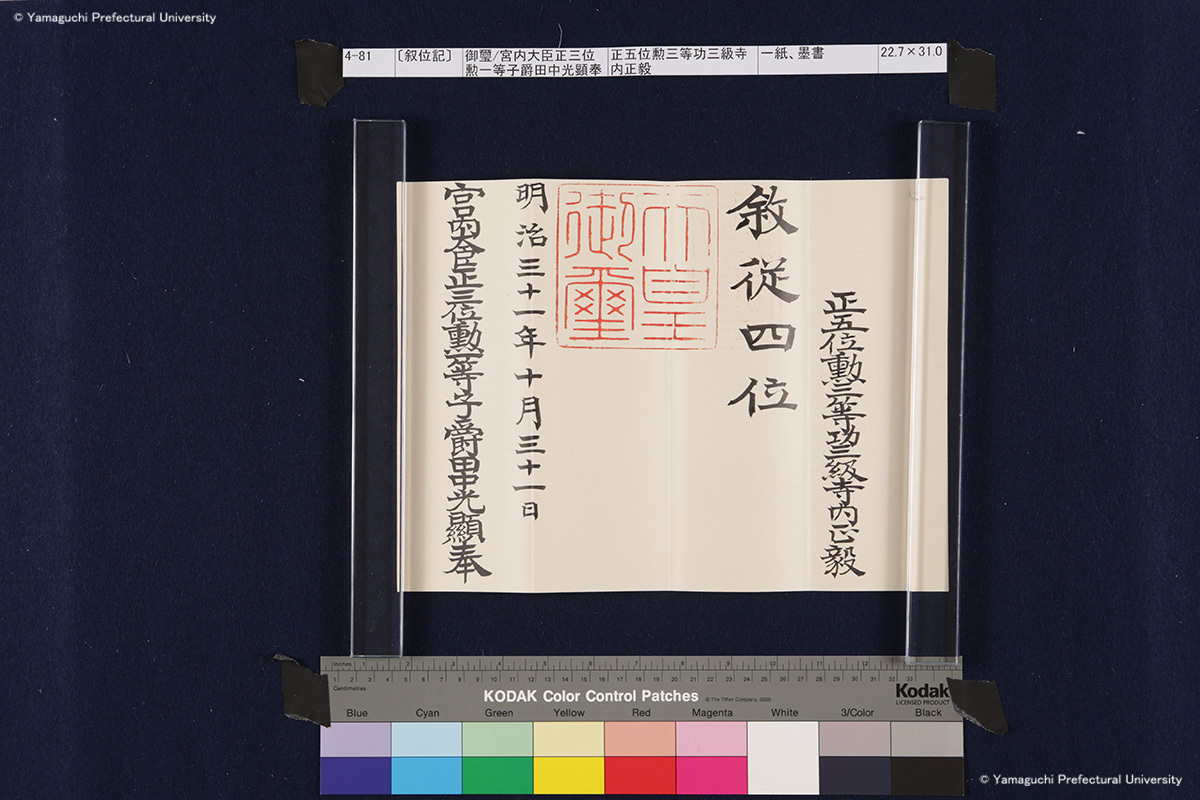 © Yamaguchi Prefectural University
4-81
〔叙位記〕
御璽/宮内大臣正三位
勲一等子爵田中光顕奉
正五位勲三等功三級寺
内正毅
一紙、墨書
22.7×31.0
正五位勲三等功三級寺内正毅
敘從四位
天皇
御璽
明治三十一年十月三十一日
宮內大臣正三位勳一等子爵田中光顯奉
Inches 1 2 3 4 5 6 7 8 9 10 11 12 13
1 2 3 4 5 6 7 8 9 10 11 12 13 14 15 16 17 18 19 20 21 22 23 24 25 26 27 28 29 30 31 32 33
Centimetres
KODAK Color Control Patches
© The Tiffen Company, 2000
Kodak
LICENSED PRODUCT
Blue Cyan Green Yellow Red Magenta White 3/Color Black
© Yamaguchi Prefectural University